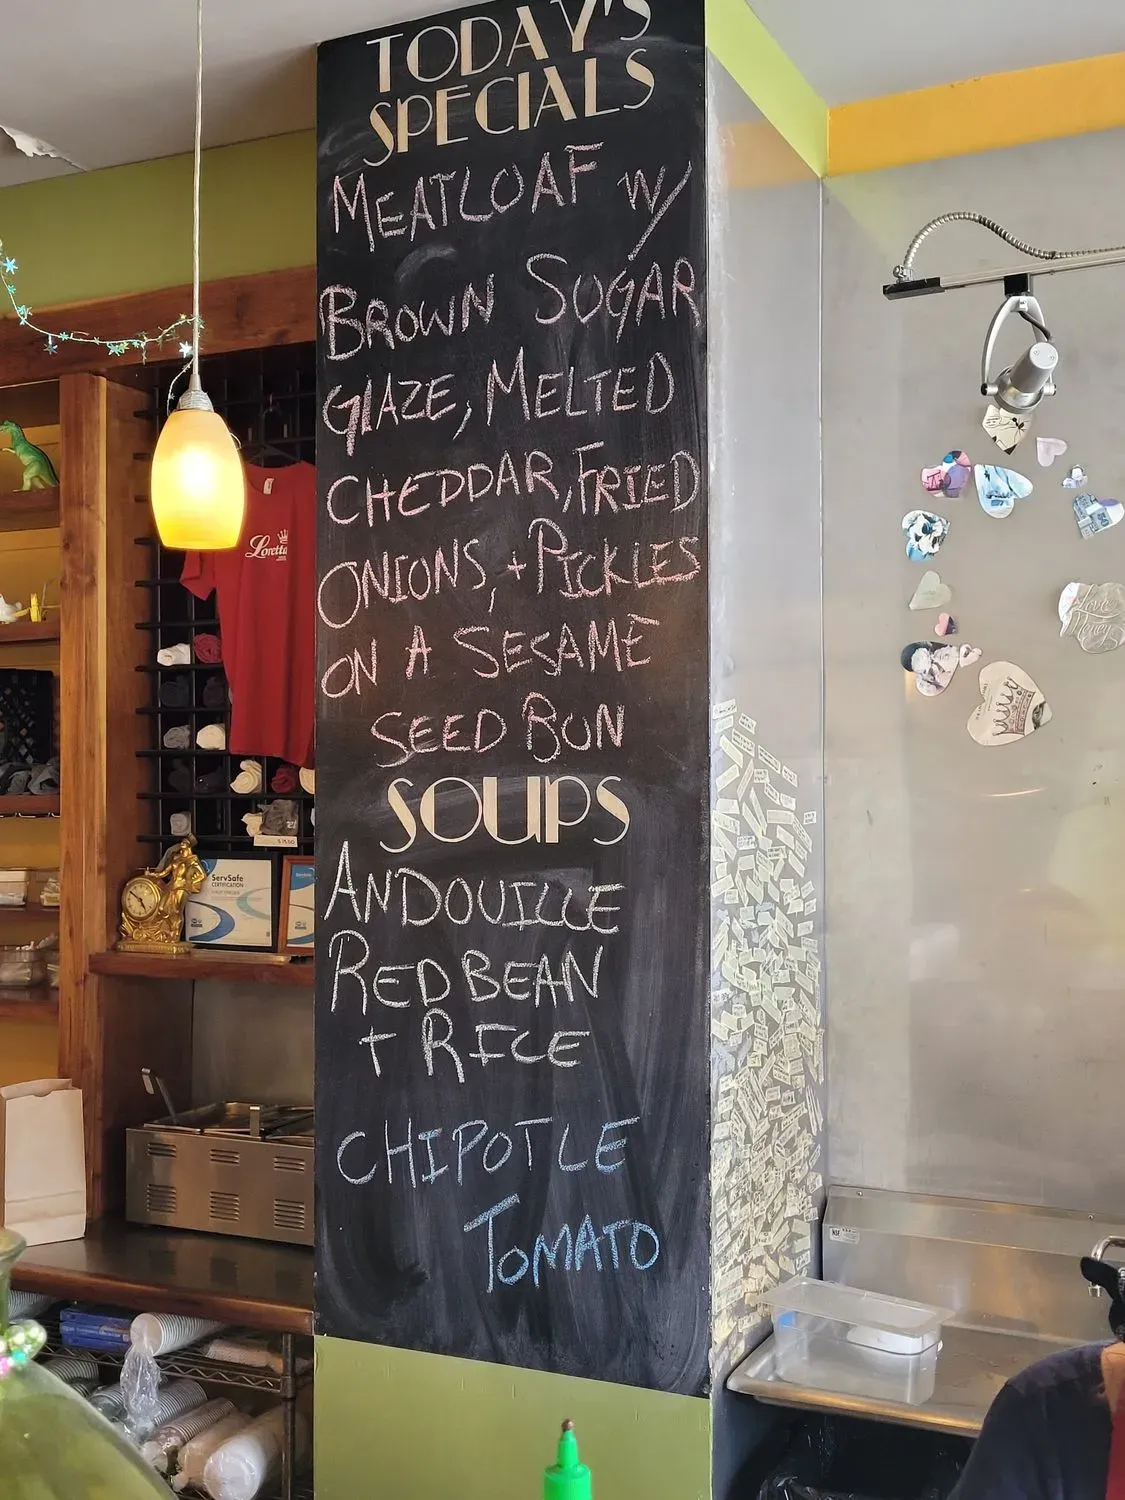 TODAY'S
SPECIALS
MEATLOAF W/
BROWN SUGAR
GLAZE, MELTED
CHEDDAR, FRIED
ONIONS, + PICKLES
ON A SESAME
SEED BUN
SOUPS
ANDOUILLE
RED BEAN
+ RICE
CHIPOTLE
TOMATO
Loretta
ServSafe
CERTIFICATION